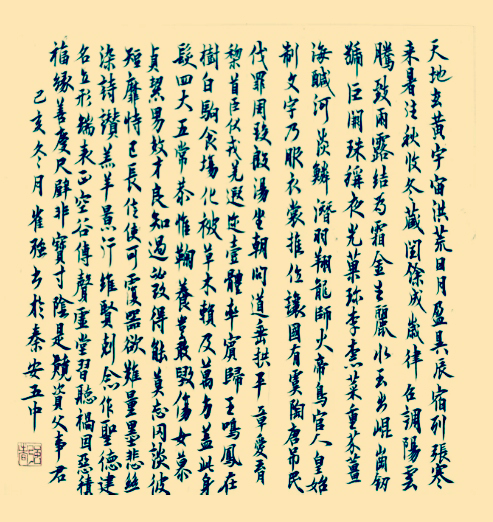 天地玄黄宇宙洪荒日月盈昃辰宿列張寒
来暑往秋收冬蔵閏餘成歲律召調陽雲
騰致雨露結为霜金生麗水玉出崐崗釰
號巨闕珠稱夜光菓珍李柰菜重芥薑
海鹹河淡鱗潛羽翔龍師火帝鳥官人皇始
制文字乃服衣裳推位讓國有虞陶唐吊民
伐罪周發殷湯坐朝問道垂拱平章愛育
黎首臣伏戎羌遐迩壹體率賓歸王鳴鳳在
樹白駒食場化被草木賴及萬方盖此身
髮四大五常恭惟鞠養豈敢毀傷女慕
貞絜男效才良知過必改得能莫忘罔談彼
短靡恃己長信使可覆器欲難量墨悲絲
染詩讚羔羊景行維賢剋念作聖德建
名立形端表正空谷傳聲虛堂習聽禍因惡積
福緣善慶尺璧非寶寸陰是競資父事君
己亥冬月崔书於秦安五中